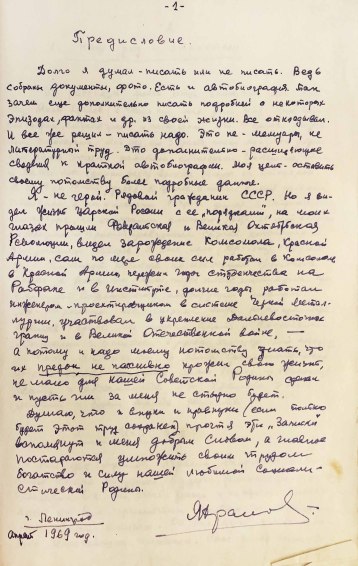 - 1 -
Предисловие.
Долго я думал - писать или не писать. Ведь
собраны документы, фото. Есть и автобиография. Так
зачем еще дополнительно писать подробней о некоторых
эпизодах, фактах и др. из своей жизни. Все откладывал.
И все же решил - писать надо. Это не - мемуары, не
литературный труд. Это дополнительно - расширяющее
сведения к краткой автобиографии. Моя цель - оставить
своему потомству более подробные данные.
Я - не герой. Рядовой гражданин СССР. Но я ви-
дел жизнь Царской России с ее "порядками", на моих
глазах прошли Февральская и Великая Октябрьская
Революции, видел зарождение Комсомола, Красной
Армии, сам по мере своих сил работал в Комсомоле
в Красной Армии, годы студенчества на
Рабфаке и в Институте, долгие годы работал
инженером - проектировщиком в системе Черной метал-
лургии, участвовал в укрепление Дальневосточных
границ и в Великой Отечественной войне, —
а потому и надо моему потомству знать, что
их предок не пассивно прожил свою жизнь,
не мало для нашей Советской Родины сделал
и пусть им за меня не стыдно будет.
Думаю, что и внуки и правнуки (если только
будет этот труд сохранен) прочтя эти "Записки"
вспомянут и меня добрым словом, а главное
постараются умножить своим трудом
богатство и силу нашей любимой Социали-
стической Родины.
г. Ленинград
апрель 1969 год.